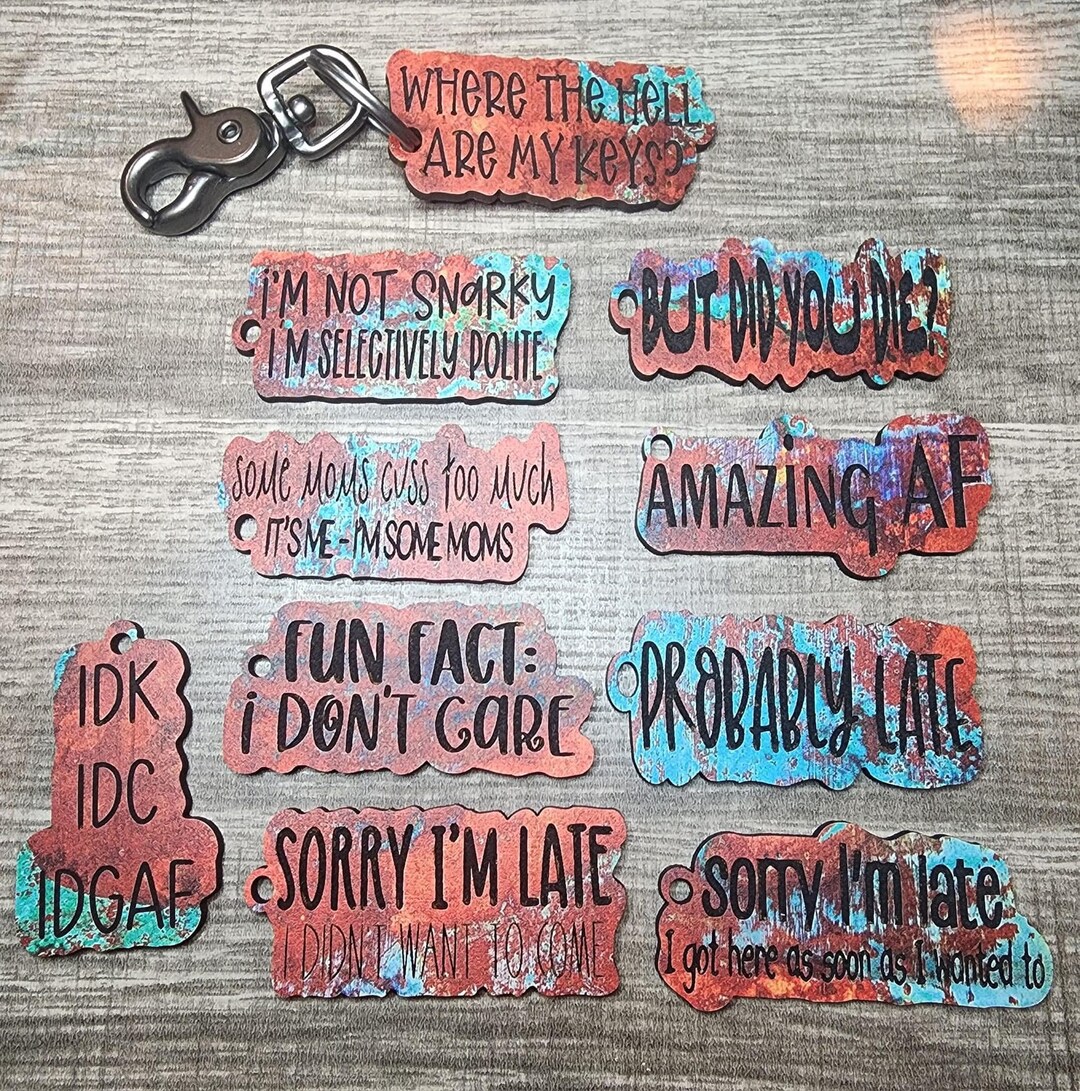 WHERE THE HELL
ARE MY KEYS?
I'M NOT SNARKY
I'M SELECTIVELY POLITE
BUT DID YOU DIE?
some moms cuss too much
IT'S ME - I'M SOME MOMS
AMAZING AF
FUN FACT:
i DON'T CARE
PROBABLY LATE
IDK
IDC
IDGAF
SORRY I'M LATE
I DIDN'T WANT TO COME
sorry I'm late
I got here as soon as I wanted to